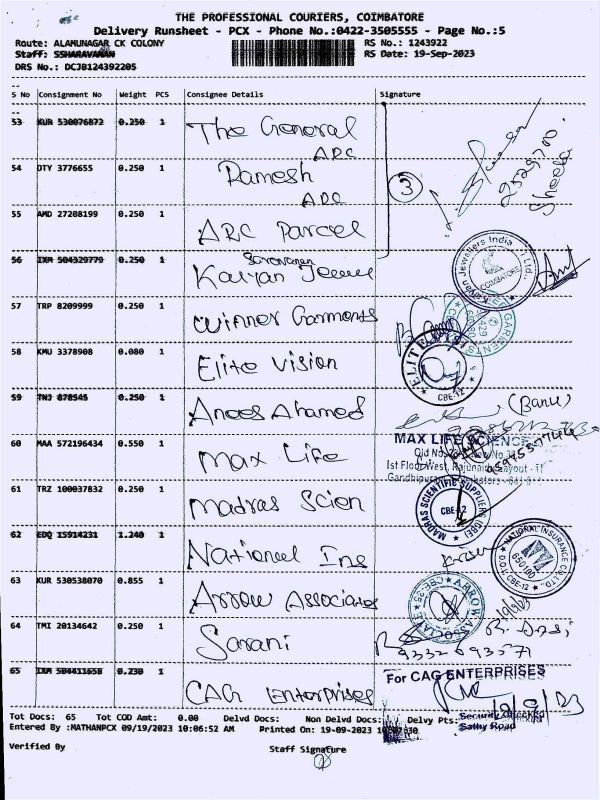 THE PROFESSIONAL COURIERS, COIMBATORE
Delivery Runsheet - PCX - Phone No.:0422-3505555 - Page No.:5
Route: ALAMUNAGAR CK COLONY
RS No.: 1243922
Staff: SSHARAVANAN
RS Date: 19-Sep-2023
DRS No.: DCJB124392205
S No Consignment No Weight PCS Consignee Details Signature
53 KUR 530076872 0.250 1 The General
ARC
54 DTY 3776655 0.250 1 Ramesh
ARC
3
55 AMD 27208199 0.250 1 ARC Parcel
Saravanan
56 IXM 504329779 0.250 1 Kalyan Jewel
Kalyan Jewellers India Pvt Ltd.
COIMBATORE
57 TRP 8209999 0.250 1 Winner Garments
GARMENTS
58 KMU 3378908 0.080 1 Elite Vision
ELITE
CBE-12
59 TNJ 878545 0.250 1 Anees Ahamed
(Banu)
60 MAA 572196434 0.550 1 Max Life
MAX LIFE SCIENCE
1st Floor West, Rajunaidu Layout
Gandhipuram
61 TRZ 100037832 0.250 1 Madras Scien
MADRAS SCIENTIFIC SUPPLIERS (CBE)
CBE-12
62 EDQ 15914231 1.240 1 National Ins
NATIONAL INSURANCE CO. LTD.
CBE-12
63 KUR 530538070 0.855 1 Arrow Associates
ARROW ASSOCIATE
CBE-25
64 TMI 20134642 0.250 1 Sarani
9332693571
65 IXM 504411658 0.230 1 CAG Enterprises
For CAG ENTERPRISES
19/9/23
Security Checked
Sathy Road
Tot Docs: 65 Tot COD Amt: 0.00 Delvd Docs: Non Delvd Docs: Delvy Pts:
Entered By :MATHANPCX 09/19/2023 10:06:52 AM Printed On: 19-09-2023
Verified By
Staff Signature